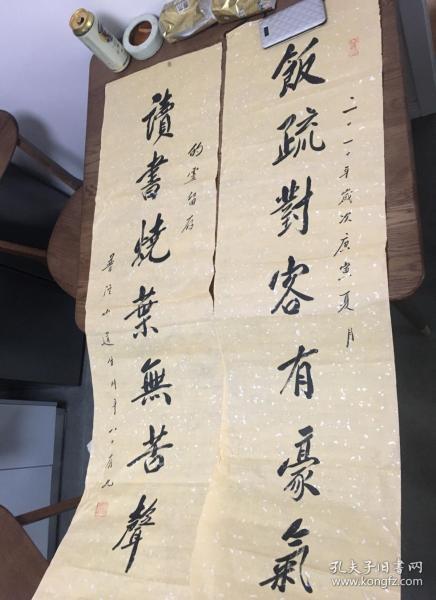 二〇一〇年歲次庚寅夏月
飯疏對客有豪氣
讀書燒葉無苦聲
孔夫子旧书网
www.kongfz.com